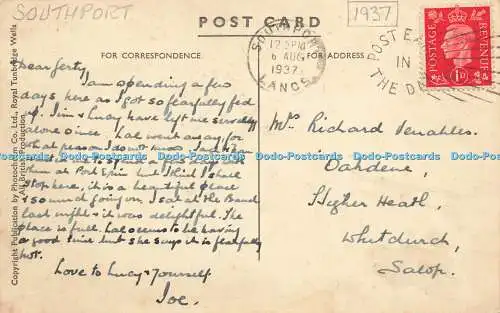 SOUTHPORT
POST CARD
1937
FOR CORRESPONDENCE.
FOR ADDRESS
SOUTHPORT
12.
6 AUG
1937
LANCS
POST EA
IN
THE D
POSTAGE
REVENUE
1D
Dear Gerty,
I am spending a few
days here as I got so fearfully fed
up. Jim & Lucy have left me severely
alone since Lal went away, for
what reason I do not know.
them at Port Erin but I think I shall
stop here, it is a beautiful place
& so much going on. I sat at the Band
last night & it was delightful. The
place is full. Lal seems to be having
a good time but she says it is fearfully
hot.
Love to Lucy & Yourself
Joe.
Mrs Richard Venables.
Oakdene,
Higher Heath,
Whitchurch,
Salop.
Copyright Publication by Photochrom Co. Ltd., Royal Tunbridge Wells.
All British Production.
www.ado-postcards.com
Ado-Postcards